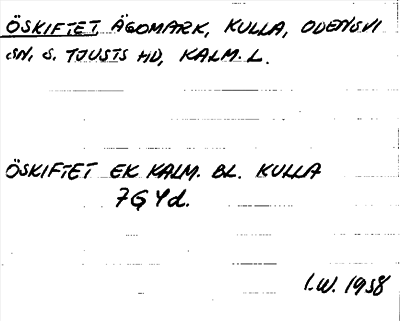 ÖSKIFTET ÄGOMARK, KULLA, ODENSVI
SN, S. TJUSTS HD, KALM. L.
ÖSKIFTET EK KALM. BL. KULLA
7G Yd.
I.W. 1958